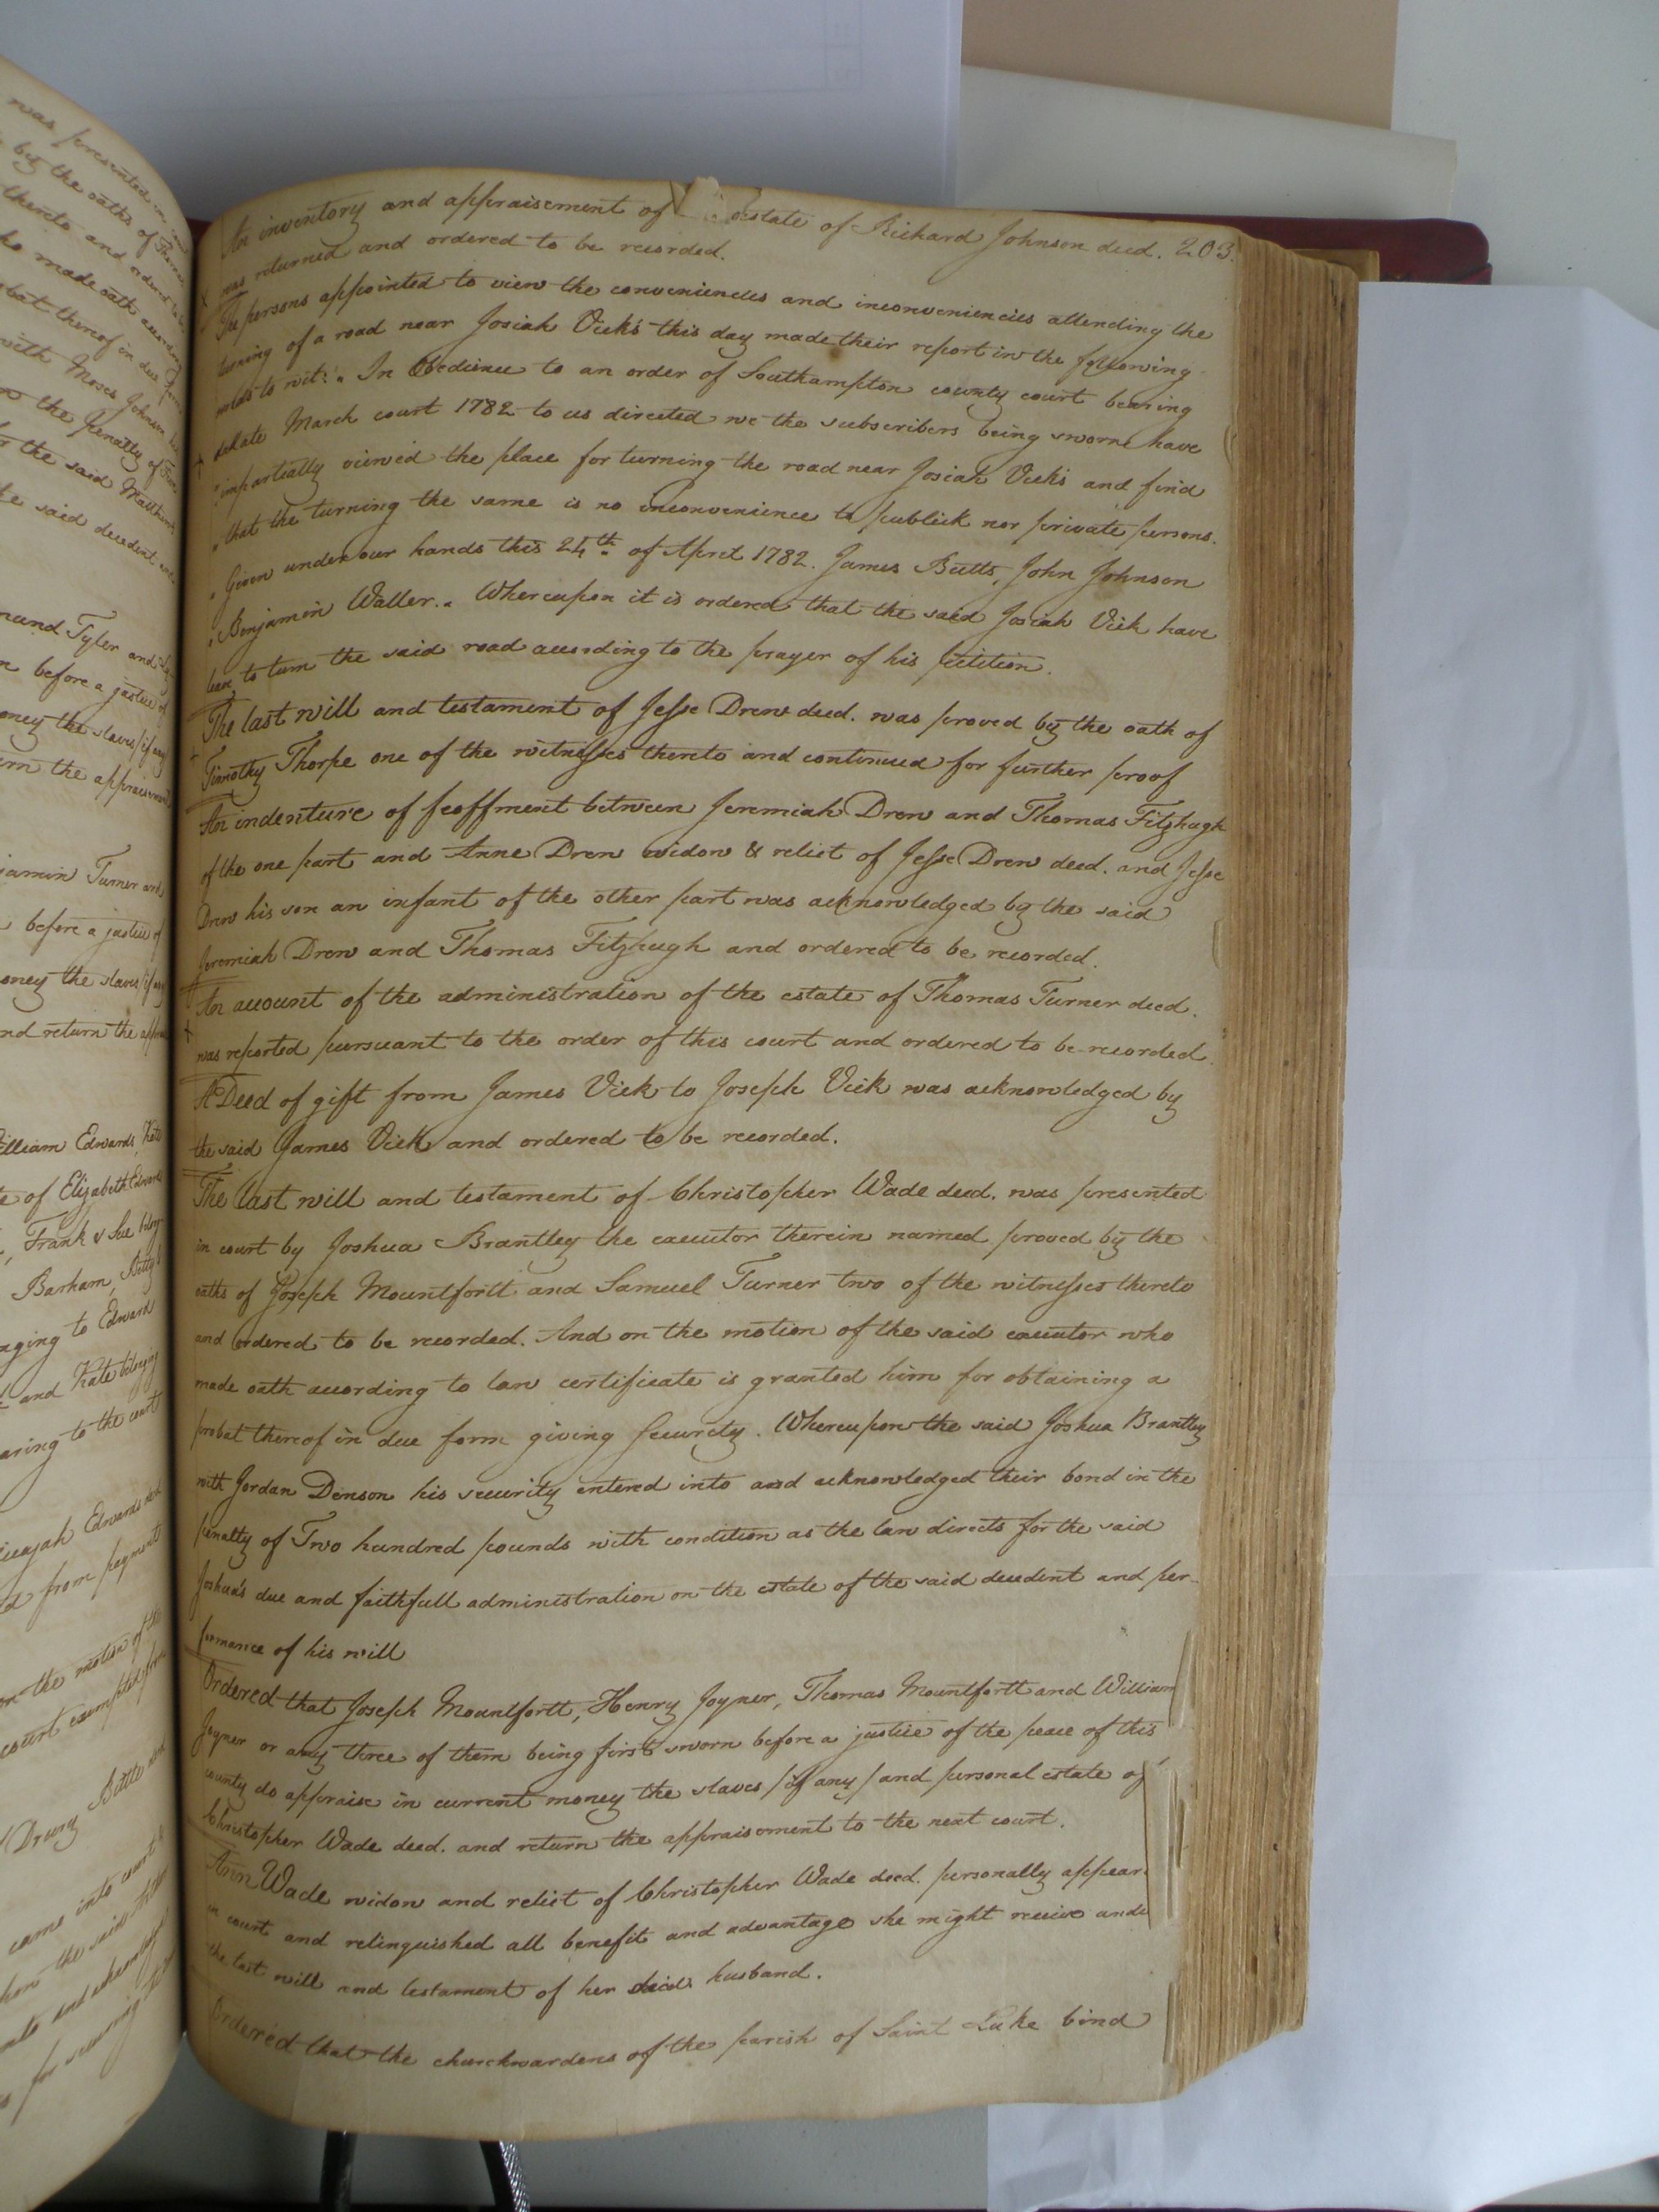 was presented in court
by the oaths of Thomas
thereto and ordered to be
made oath according
bat thereof in due form
with Moses Johnson his
the Penalty of Five
the said Matthew's
said decedent and
mund Tyler and
before a justice of
oney the slaves /if any
the appraisement
jamin Turner and
before a justice of
oney the slaves /if any
nd return the appra
illiam Edwards, Kate
of Elizabeth Edwards
, Frank & Sue belong
Barham,
nging to Edward
and Kate belonging
aring to the court
ajah Edwards
from payment
on the motion of the
court exempted from
Drury Battle and
came into court
the said
and acknowledged
for securing
An inventory and appraisement of estate of Richard Johnson deed. 203.
was returned and ordered to be recorded.
The persons appointed to view the conveniencies and inconveniencies attending the
turning of a road near Josiah Vick's this day made their report in the following
words to wit: " In Obedience to an order of Southampton county court bearing
date March court 1782 to us directed we the subscribers being sworn have
" impartially viewed the place for turning the road near Josiah Vicks and find
" that the turning the same is no inconvenience to publick nor private persons.
" Given under our hands this 24th of April 1782. James Butts, John Johnson
" Benjamin Waller. " Whereupon it is ordered that the said Josiah Vick have
leave to turn the said road according to the prayer of his petition.
The last will and testament of Jesse Drew deed. was proved by the oath of
Timothy Thorpe one of the witnesses thereto and continued for further proof
An indenture of feoffment between Jeremiah Drew and Thomas Fitzhugh
of the one part and Anne Drew widow & relict of Jesse Drew deed. and Jesse
Drew his son an infant of the other part was acknowledged by the said
Jeremiah Drew and Thomas Fitzhugh and ordered to be recorded.
An account of the administration of the estate of Thomas Turner deed.
was reported pursuant to the order of this court and ordered to be recorded.
A Deed of gift from James Vick to Joseph Vick was acknowledged by
the said James Vick and ordered to be recorded.
The last will and testament of Christopher Wade deed. was presented
in court by Joshua Brantley the executor therein named proved by the
oaths of Joseph Mountfortt and Samuel Turner two of the witnesses thereto
and ordered to be recorded. And on the motion of the said executor who
made oath according to law certificate is granted him for obtaining a
probat thereof in due form giving security. Whereupon the said Joshua Brantley
with Jordan Denson his security entered into and acknowledged their bond in the
penalty of Two hundred pounds with condition as the law directs for the said
Joshua's due and faithfull administration on the estate of the said decedent and per-
formance of his will
Ordered that Joseph Mountfortt, Henry Joyner, Thomas Mountfortt and William
Joyner or any three of them being first sworn before a justice of the peace of this
county do appraise in current money the slaves /if any/ and personal estate of
Christopher Wade deed. and return the appraisement to the next court.
Ann Wade widow and relict of Christopher Wade deed. personally appear
in court and relinquished all benefit and advantage she might receive unde
the last will and testament of her said husband.
Ordered that the churchwardens of the parish of Saint Luke bind